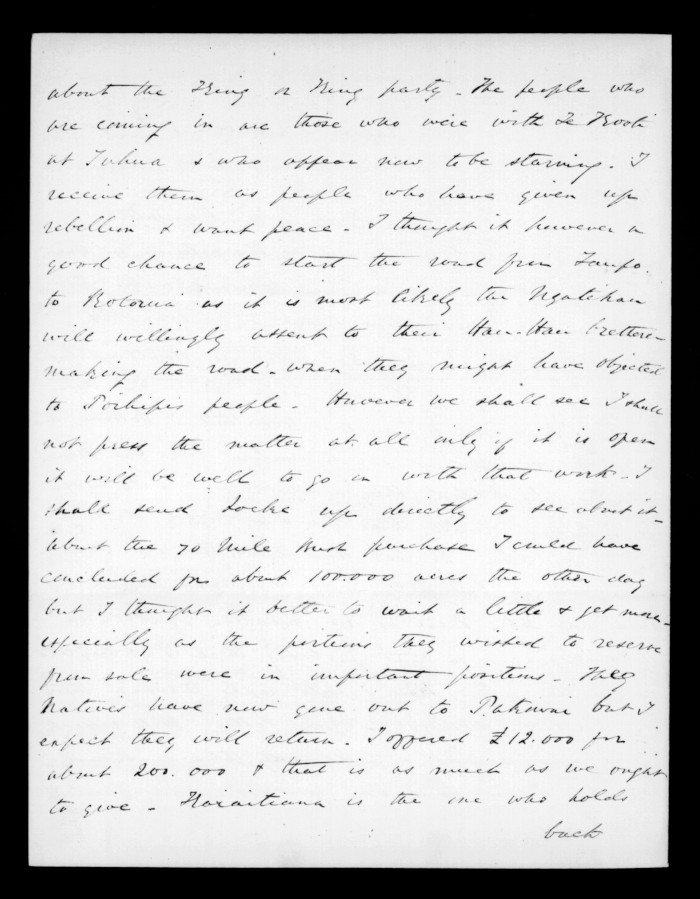 about the King or King party - The people who
are coming in are those who were with Te Kooti
at Tuhua & who appear now to be starving. I
receive them as people who have given up
rebellion & want peace - I thought it however a
good chance to start the road from Taupo.
to Rotorua as it is most likely the Ngatihau
will willingly assent to their Hau-Hau bretheren
making the road - when they might have objected
to Poihipis people - However we shall see I shall
not press the matter at all only if it is open
it will be well to go on with that work - I
shall send Locke up directly to see about it -
About the 70 Mile Bush purchase I could have
concluded for about 100.000 acres the other day
but I thought it better to wait a little & get more -
especially as the portions they wished to reserve
from sale were in important positions - They
Natives have now gone out to Patea but I
expect they will return - I offered £12.000 for
about 200.000 & that is as much as we ought
to give - Karaitiana is the one who holds
back